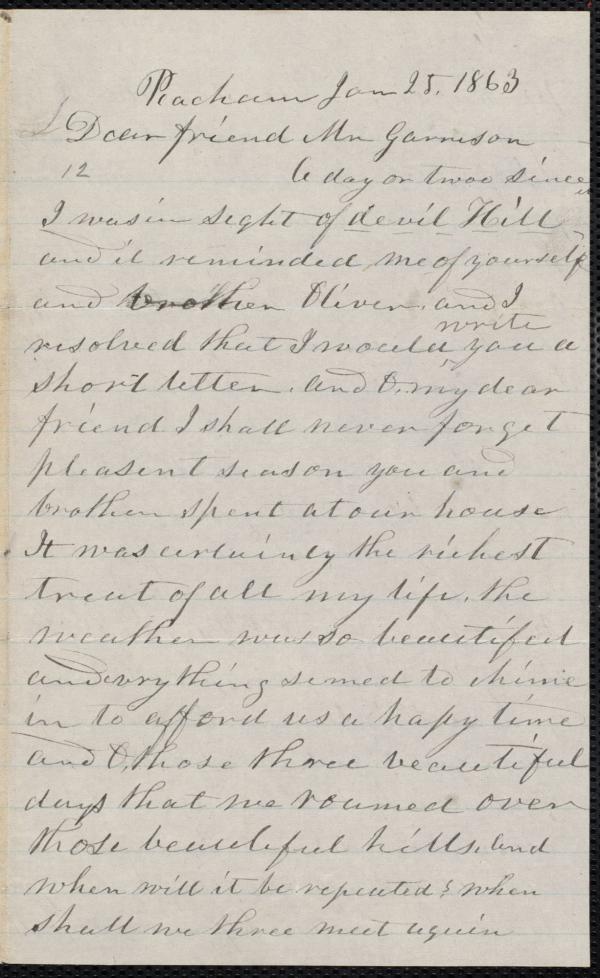 Peacham Jan 25, 1863
Dear friend Mr Garrison
12 A day or twoo since
I was in sight of devil Hill
and it reminded me of yourself
and brother Oliver, and I
write
resolved that I would you a
short letter. and O, my dear
friend I shall never forget
pleasent season you and
brother spent at our house
It was certainly the richest
treat of all my life, the
weather was so beautifull
and evrything semed to chime
in to afford us a hapy time
and O, those three beautiful
days that we roamed over
those beautiful hills, and
when will it be repeated? when
shall we three meet again